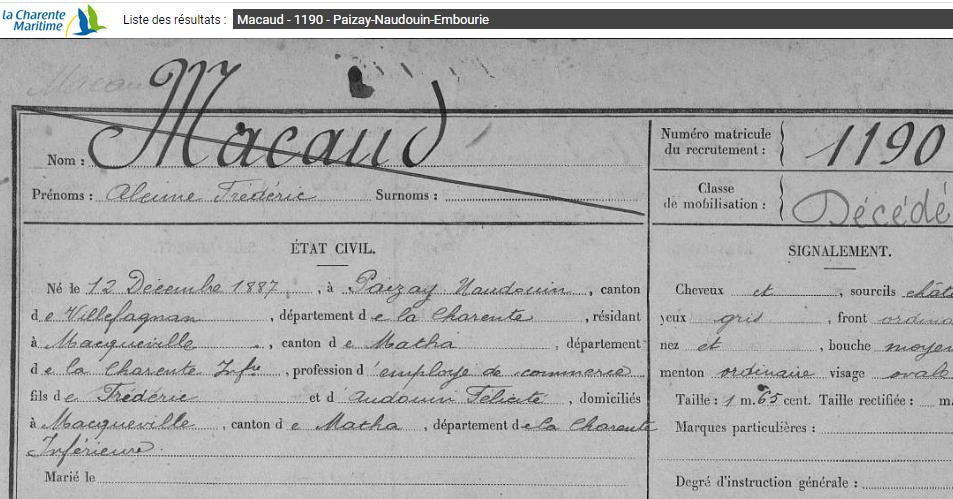 la Charente
Maritime
Liste des résultats : Macaud - 1190 - Paizay-Naudouin-Embourie
Macaud
Nom : Macaud
Prénoms : Alcime Frédéric Surnoms :
Numéro matricule
du recrutement : 1190
Classe
de mobilisation : Décédé
ÉTAT CIVIL.
Né le 12 Décembre 1887, à Paizay Naudouin, canton
de Villefagnan, département de la Charente, résidant
à Macqueville, canton de Matha, département
de la Charente Infre, profession d'employé de commerce
fils de Frédéric et d'Audouin Félicité, domiciliés
à Macqueville, canton de Matha, département de la Charente
Inférieure.
Marié le
SIGNALEMENT.
Cheveux et, sourcils chât
yeux gris, front ordina
nez et, bouche moyen
menton ordinaire visage oval
Taille : 1 m. 65 cent. Taille rectifiée : m.
Marques particulières :
Degré d'instruction générale :